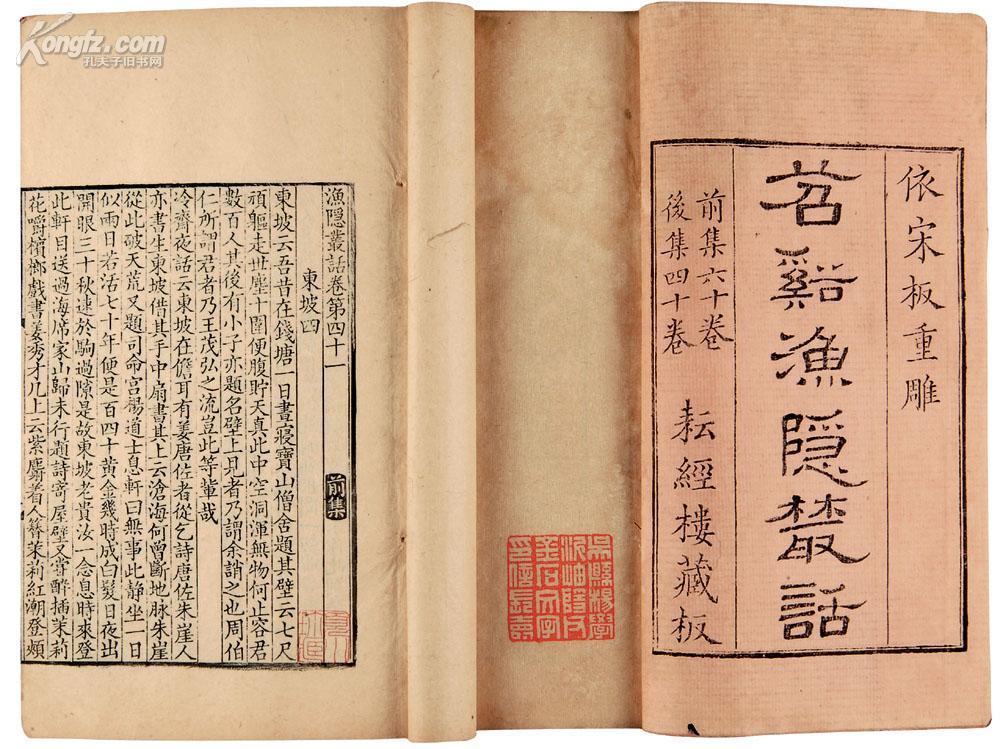 Kongfz.com
孔夫子旧书网
依宋板重雕
苕谿漁隱叢話
前集六十卷
後集四十卷
耘經樓藏板
吳縣楊學
沂岫陵氏
金石文字
印信長壽
漁隱叢話卷第四十一
前集
東坡四
東坡云吾昔在錢塘一日晝寢寶山僧舍題其壁云七尺
頑軀走世塵十圍便腹貯天真此中空洞渾無物何止容君
數百人其後有小子亦題名壁上見者乃謂余誚之也周伯
仁所謂君者乃王茂弘之流豈此等輩哉
冷齋夜話云東坡在儋耳有姜唐佐者從乞詩唐佐朱崖人
亦書生東坡借其手中扇書其上云滄海何曾斷地脉朱崖
從此破天荒又題司命宮楊道士息軒曰無事此靜坐一日
似兩日若活七十年便是百四十黃金幾時成白髮日夜出
開眼三十秋速於駒過隙是故東坡老貴汝一念息時來登
此軒目送過海席家山歸未行題詩寄屋壁又嘗醉插茉莉
花嚼檳榔戲書姜秀才几上云紫麝着人簪茉莉紅潮登頰